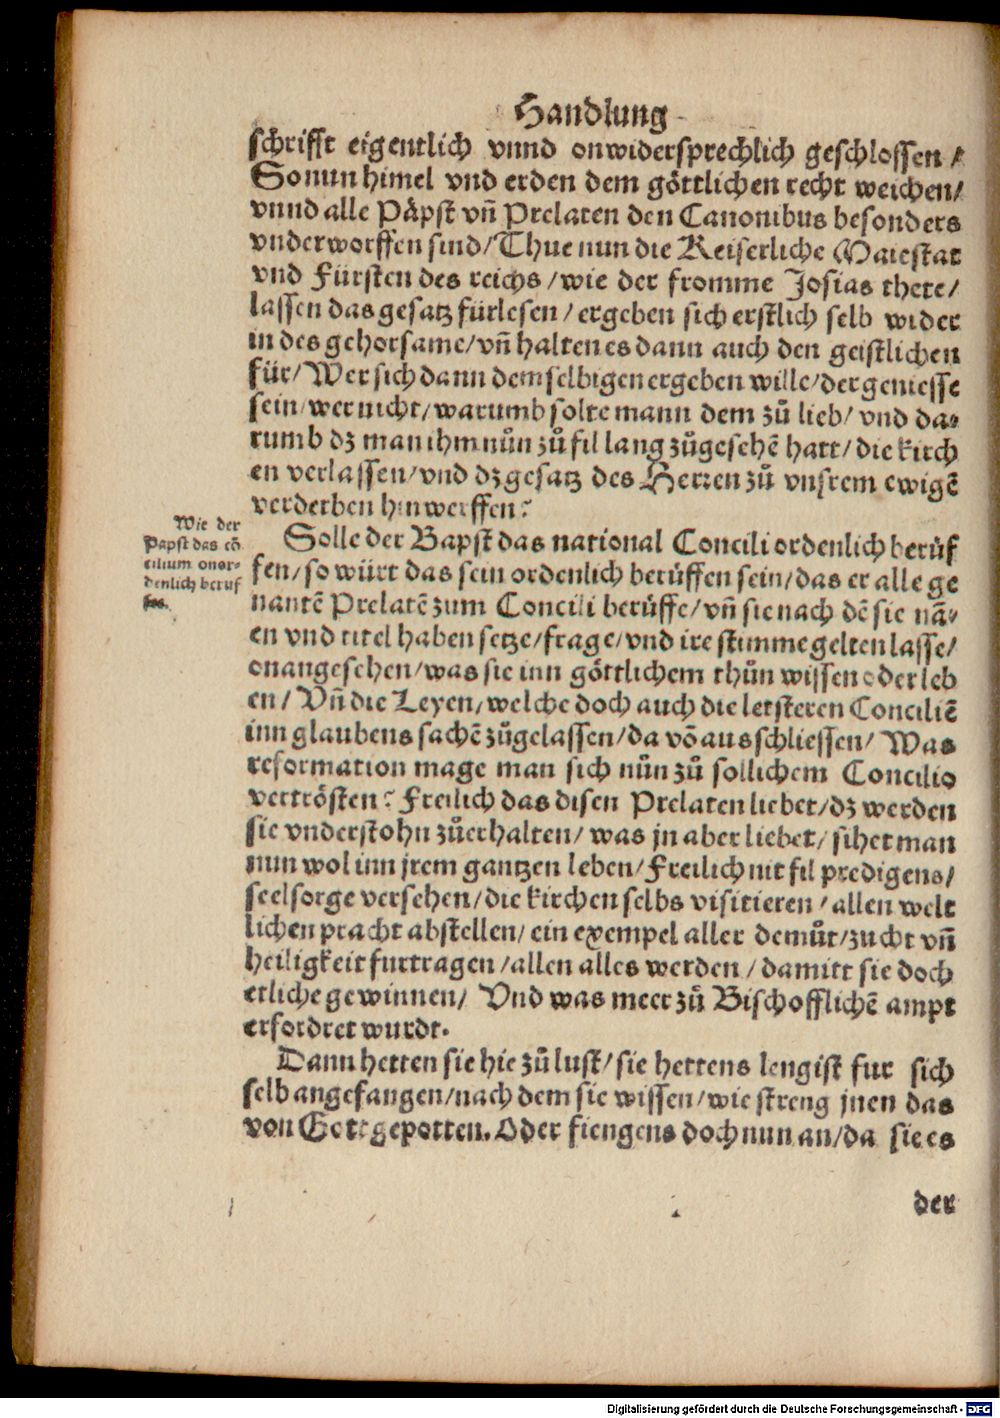 Handlung
schrifft eigentlich vnnd onwidersprechlich geschlossen /
So nun himel vnd erden dem göttlichen recht weichen/
vnnd alle Päpst vñ Prelaten den Canonibus besonders
vnderworffen sind/Thue nun die Keiserliche Maiestat
vnd Fürsten des reichs /wie der fromme Josias thete/
lassen das gesatz fürlesen / ergeben sich erstlich selb wider
in des gehorsame/vñ halten es dann auch den geistlichen
für/Wer sich dann demselbigen ergeben wille/der geniesse
sein/wer nicht/warumb solte mann dem zů lieb/ vnd da⸗
rumb dz man ihm nůn zů fil lang zůgesehē hatt/die kirch
en verlassen/vnd dz gesatz des Herren zů vnsrem ewigē
verderben hinwerffen?
Wie der
Papst das cō
cilium onor⸗
denlich beruf
fen.
Solle der Bapst das national Concili ordenlich berůf
fen/so würt das sein ordenlich berůffen sein/das er alle ge
nantē Prelatē zum Concili berůffe/vñ sie nach dē sie nā⸗
en vnd titel haben setze/frage/vnd ire stimme gelten lasse/
onangesehen/was sie inn göttlichem thůn wissen oder leb
en/ Vñ die Leyen/welche doch auch die letsteren Conciliē
inn glaubens sachē zůgelassen/da vō ausschliessen/ Was
reformation mage man sich nůn zů sollichem Concilio
vertrösten? Freilich das disen Prelaten liebet/dz werden
sie vnderstohn zůerhalten/ was jn aber liebet/ sihet man
nun wol inn jrem gantzen leben/Freilich nit fil predigens/
seelsorge versehen/die kirchen selbs visitieren / allen welt
lichen pracht abstellen/ ein exempel aller demůt/zucht vñ
heiligkeit furtragen /allen alles werden / damitt sie doch
etliche gewinnen/ Vnd was meer zů Bischofflichē ampt
erfordret wurdt.
Dann hetten sie hie zů lust/ sie hettens lengist fur sich
selb angefangen/nach dem sie wissen/wie streng jnen das
von Gott gepotten. Oder fiengens doch nun an/da sie es
der
Digitalisierung gefördert durch die Deutsche Forschungsgemeinschaft - DFG